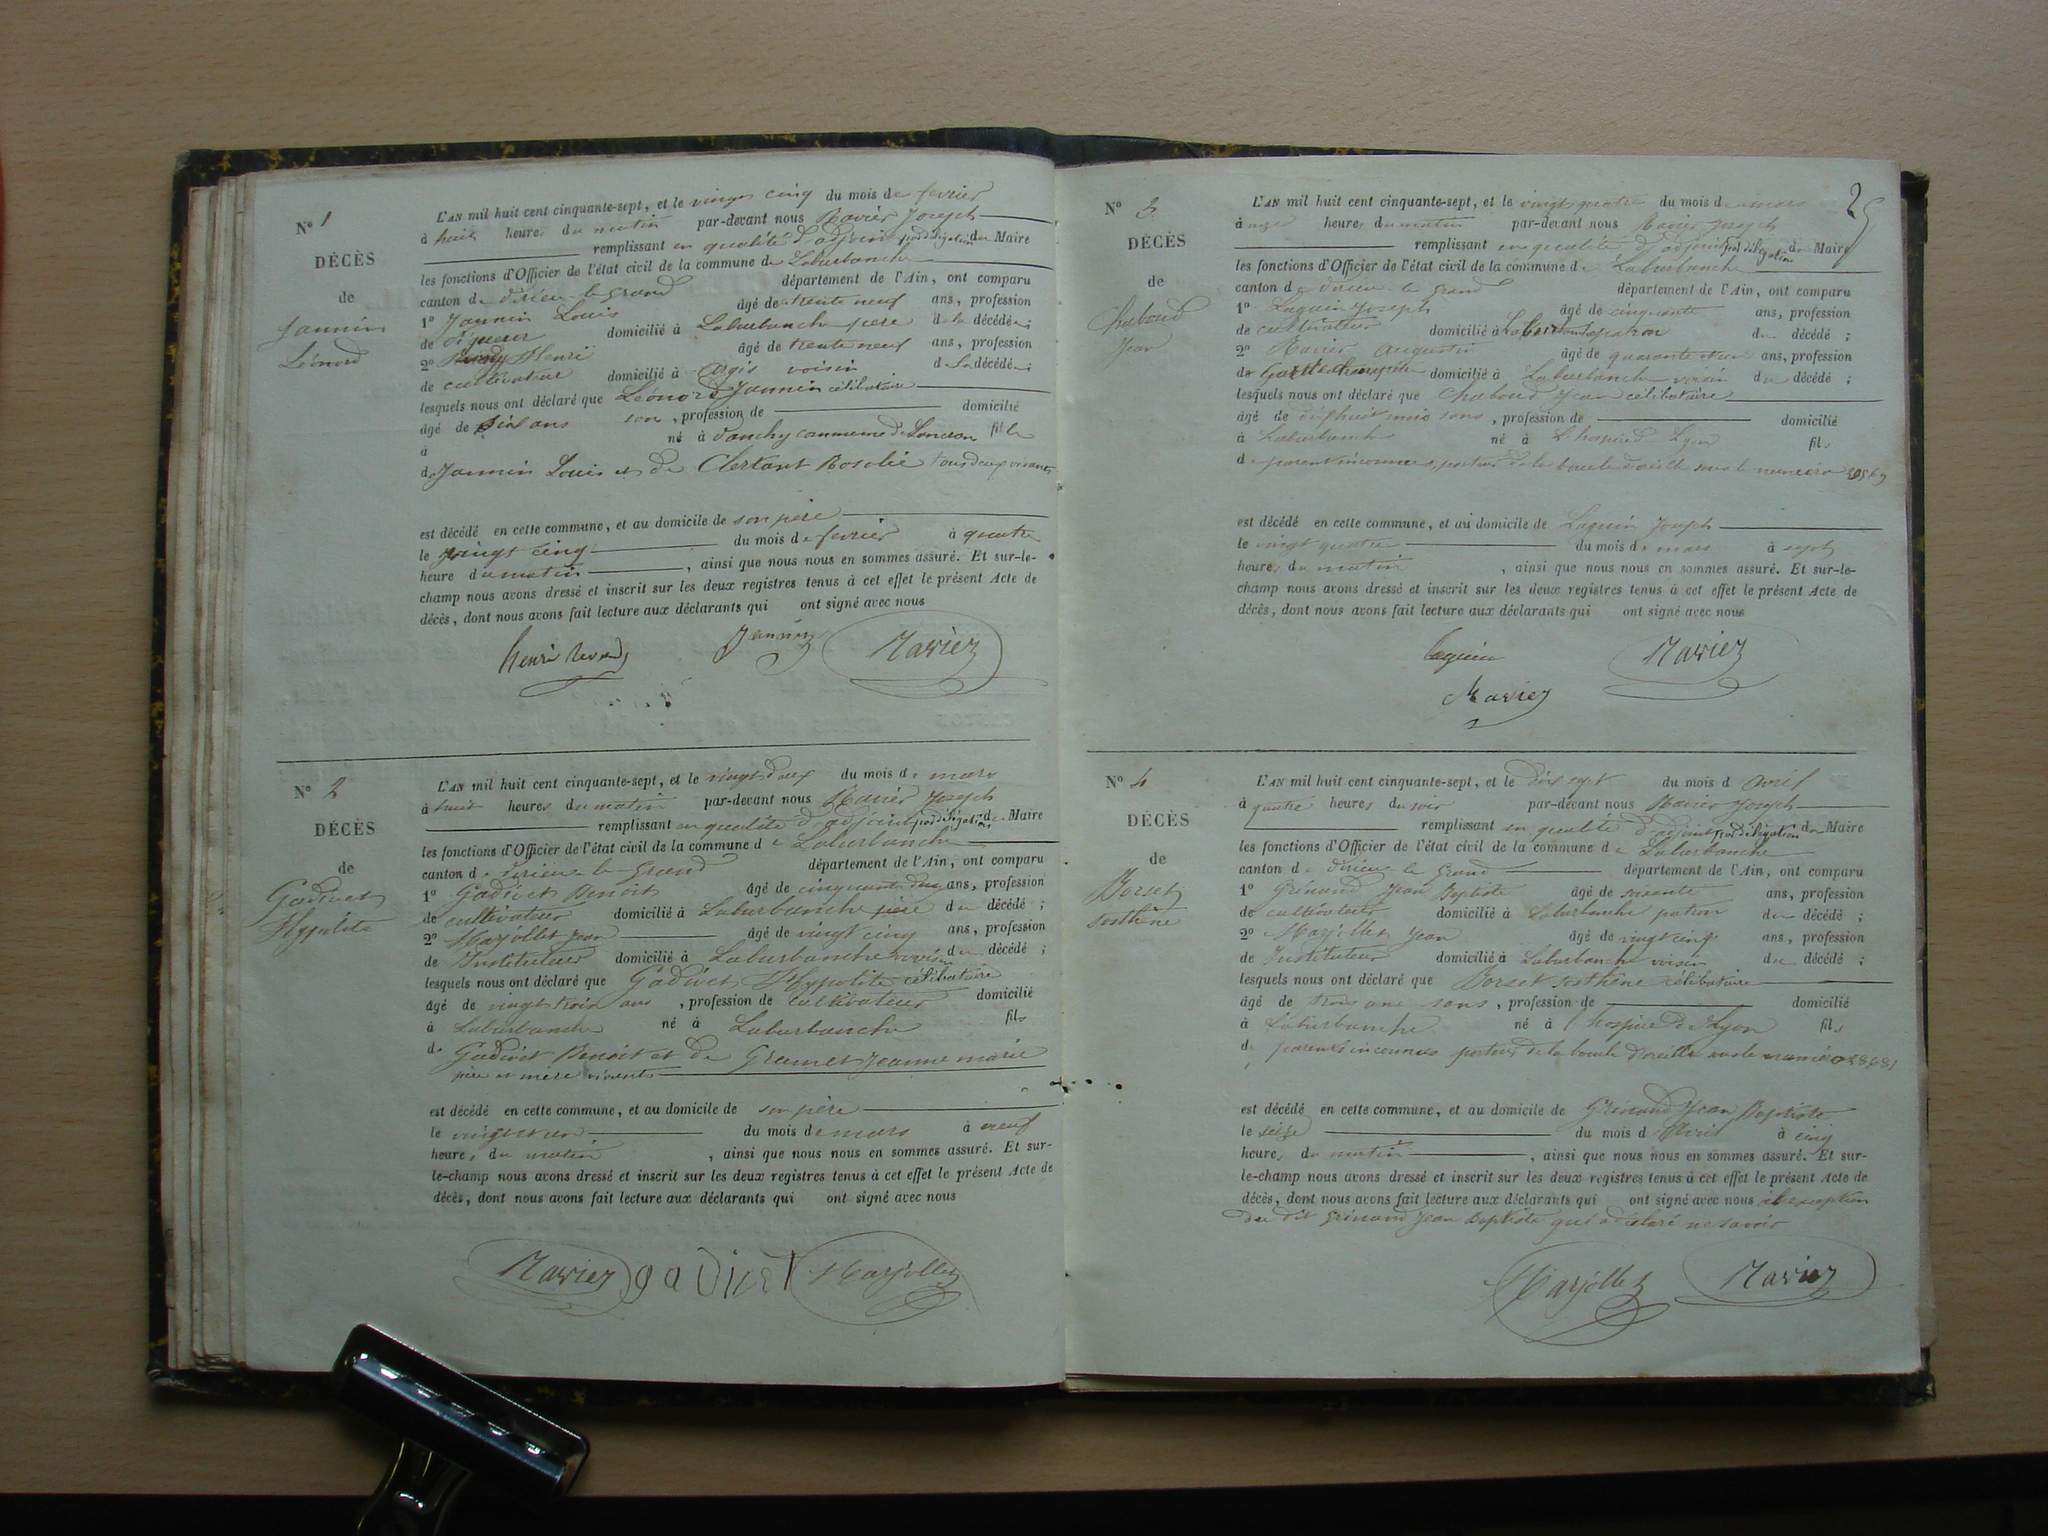 N° 1
DÉCÈS
de
Jannin
Léonord
L'AN mil huit cent cinquante-sept, et le vingt cinq du mois de fevrier
à huit heures du matin par-devant nous Ravier Joseph
remplissant en qualité d'adjoint par déligation du Maire
les fonctions d'Officier de l'état civil de la commune de Laburbanche
canton de Virieu-le-Grand département de l'Ain, ont comparu
1° Jannin Louis âgé de trente neuf ans, profession
de domicilié à Laburbanche père de la décédée;
2° Henri âgé de trente neuf ans, profession
de cultivateur domicilié à Argis voisin de la décédée;
lesquels nous ont déclaré que Léonord Jannin célibataire
âgé de ans son, profession de domicilié
à né à commune de fille
de Jannin Louis et de Clertant Rosalie tous deux vivants
est décédé en cette commune, et au domicile de son père
le vingt cinq du mois de fevrier à quatre
heure du matin, ainsi que nous nous en sommes assuré. Et sur-le-
champ nous avons dressé et inscrit sur les deux registres tenus à cet effet le présent Acte de
décès, dont nous avons fait lecture aux déclarants qui ont signé avec nous
henri Jannin Ravier
N° 2
DÉCÈS
de
Gadivet
Hyppolite
L'AN mil huit cent cinquante-sept, et le vingt deux du mois de mars
à huit heures du matin par-devant nous Ravier Joseph
remplissant en qualité d'adjoint par déligation du Maire
les fonctions d'Officier de l'état civil de la commune de Laburbanche
canton de Virieu-le-Grand département de l'Ain, ont comparu
1° Gadivet Benoit âgé de cinquante deux ans, profession
de cultivateur domicilié à Laburbanche père du décédé;
2° Marjollet Jean âgé de vingt cinq ans, profession
de Instituteur domicilié à Laburbanche voisin du décédé;
lesquels nous ont déclaré que Gadivet Hyppolite célibataire
âgé de vingt trois ans, profession de cultivateur domicilié
à Laburbanche né à Laburbanche fils
de Gadivet Benoit et de Gramet Jeanne marie
père et mère vivants
est décédé en cette commune, et au domicile de son père
le vingt un du mois de mars à neuf
heures du matin, ainsi que nous nous en sommes assuré. Et sur-
le-champ nous avons dressé et inscrit sur les deux registres tenus à cet effet le présent Acte de
décès, dont nous avons fait lecture aux déclarants qui ont signé avec nous
Ravier gadivet Marjollet
25
N° 3
DÉCÈS
de
Chaboud
Jean
L'AN mil huit cent cinquante-sept, et le vingt quatre du mois de mars
à onze heures du matin par-devant nous Ravier Joseph
remplissant en qualité d'adjoint par déligation du Maire
les fonctions d'Officier de l'état civil de la commune de Laburbanche
canton de Virieu-le-Grand département de l'Ain, ont comparu
1° Laguin Joseph âgé de cinquante ans, profession
de cultivateur domicilié à Laburbanche patron du décédé;
2° Ravier Augustin âgé de quarante ans, profession
de Garde champêtre domicilié à Laburbanche voisin du décédé;
lesquels nous ont déclaré que Chaboud Jean célibataire
âgé de dix huit mois sans, profession de domicilié
à Laburbanche né à L'hospice Lyon fils
de parent inconnus, porteur de la boucle d'oreille sous le numéro
est décédé en cette commune, et au domicile de Laguin Joseph
le vingt quatre du mois de mars à sept
heures du matin, ainsi que nous nous en sommes assuré. Et sur-le-
champ nous avons dressé et inscrit sur les deux registres tenus à cet effet le présent Acte de
décès, dont nous avons fait lecture aux déclarants qui ont signé avec nous
Laguin Ravier
Ravier
N° 4
DÉCÈS
de
Borset
Sosthène
L'AN mil huit cent cinquante-sept, et le dix sept du mois d Avril
à quatre heures du soir par-devant nous Ravier Joseph
remplissant en qualité d'adjoint par déligation du Maire
les fonctions d'Officier de l'état civil de la commune de Laburbanche
canton de Virieu le Grand département de l'Ain, ont comparu
1° Grinand Jean Baptiste âgé de soixante ans, profession
de cultivateur domicilié à Laburbanche patron du décédé;
2° Marjollet Jean âgé de vingt cinq ans, profession
de Instituteur domicilié à Laburbanche voisin du décédé;
lesquels nous ont déclaré que Borset Sosthène célibataire
âgé de trois ans sans, profession de domicilié
à Laburbanche né à l'hospice de Lyon fils
de parents inconnus porteur de la boucle d'oreille sous le numéro
est décédé en cette commune, et au domicile de Grinand Jean Baptiste
le seize du mois d Avril à cinq
heures du matin, ainsi que nous nous en sommes assuré. Et sur-
le-champ nous avons dressé et inscrit sur les deux registres tenus à cet effet le présent Acte de
décès, dont nous avons fait lecture aux déclarants qui ont signé avec nous à l'exception
du dit Grinand Jean Baptiste qui a déclaré ne savoir
Marjollet Ravier